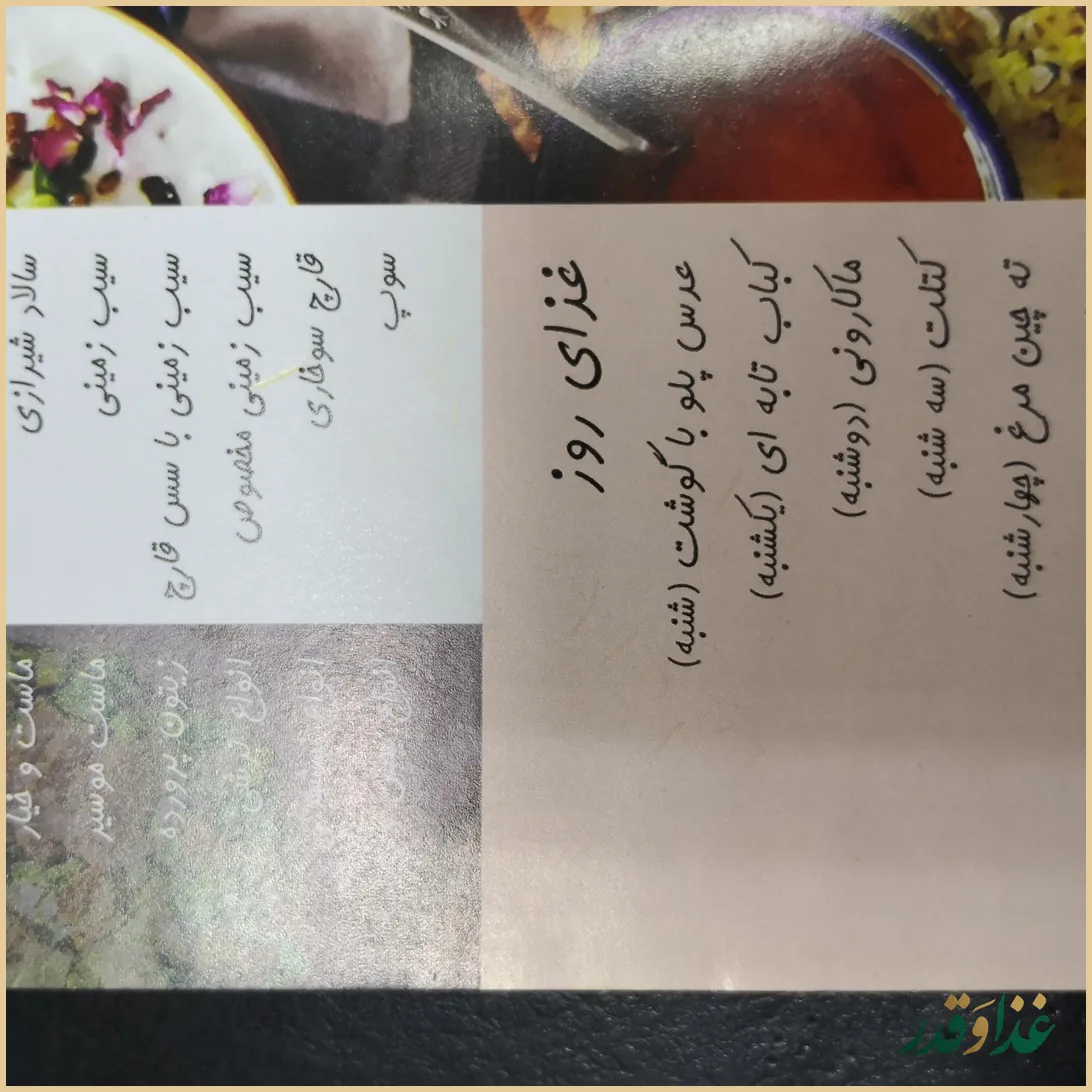 غذای روز
عدس پلو با گوشت (شنبه)
کباب تابه ای (یکشنبه)
ماکارونی (دوشنبه)
کتلت (سه شنبه)
ته چین مرغ (چهارشنبه)
سالاد شیرازی
سیب زمینی
سیب زمینی با سس قارچ
سیب زمینی مخصوص
قارچ سوخاری
سوپ
ماست و خیار
ماست موسیر
زیتون پرورده
انواع ترشی
انواع
انواع
غذا و قدر